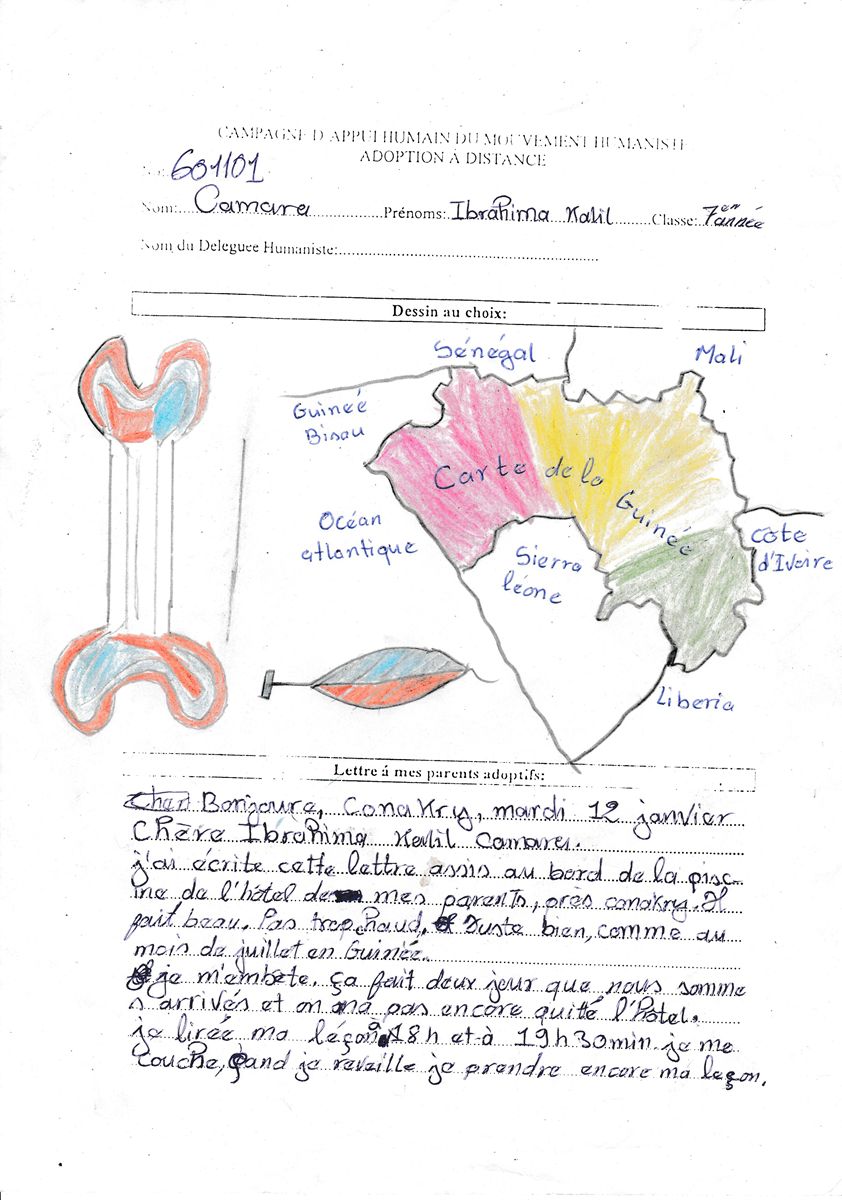 CAMPAGNE D'APPUI HUMAIN DU MOUVEMENT HUMANISTE
ADOPTION À DISTANCE
601101
Nom: Camara Prénoms: Ibrahima Kalil Classe: 7en année
Nom du Deleguee Humaniste:
Dessin au choix:
Sénégal
Mali
Guinée
Bisau
Carte de la Guinée
Océan
atlantique
Sierra
léone
côte
d'Ivoire
Liberia
Lettre á mes parents adoptifs:
Bonjoure, Conakry, mardi 12 janvier
Chère Ibrahima Kalil Camara.
j'ai écrite cette lettre assis au bord de la pisc-
ine de l'hôtel de mes parents, près conakry. Il
fait beau. Pas trop chaud. Juste bien, comme au
mois de juillet en Guinée.
je m'embête. ça fait deux jour que nous somme
s arrivés et on na pas encore quité l'hôtel.
je lirée ma léçon à 18h et à 19h30min je me
couche, qand je reveille je prendre encore ma leçon.